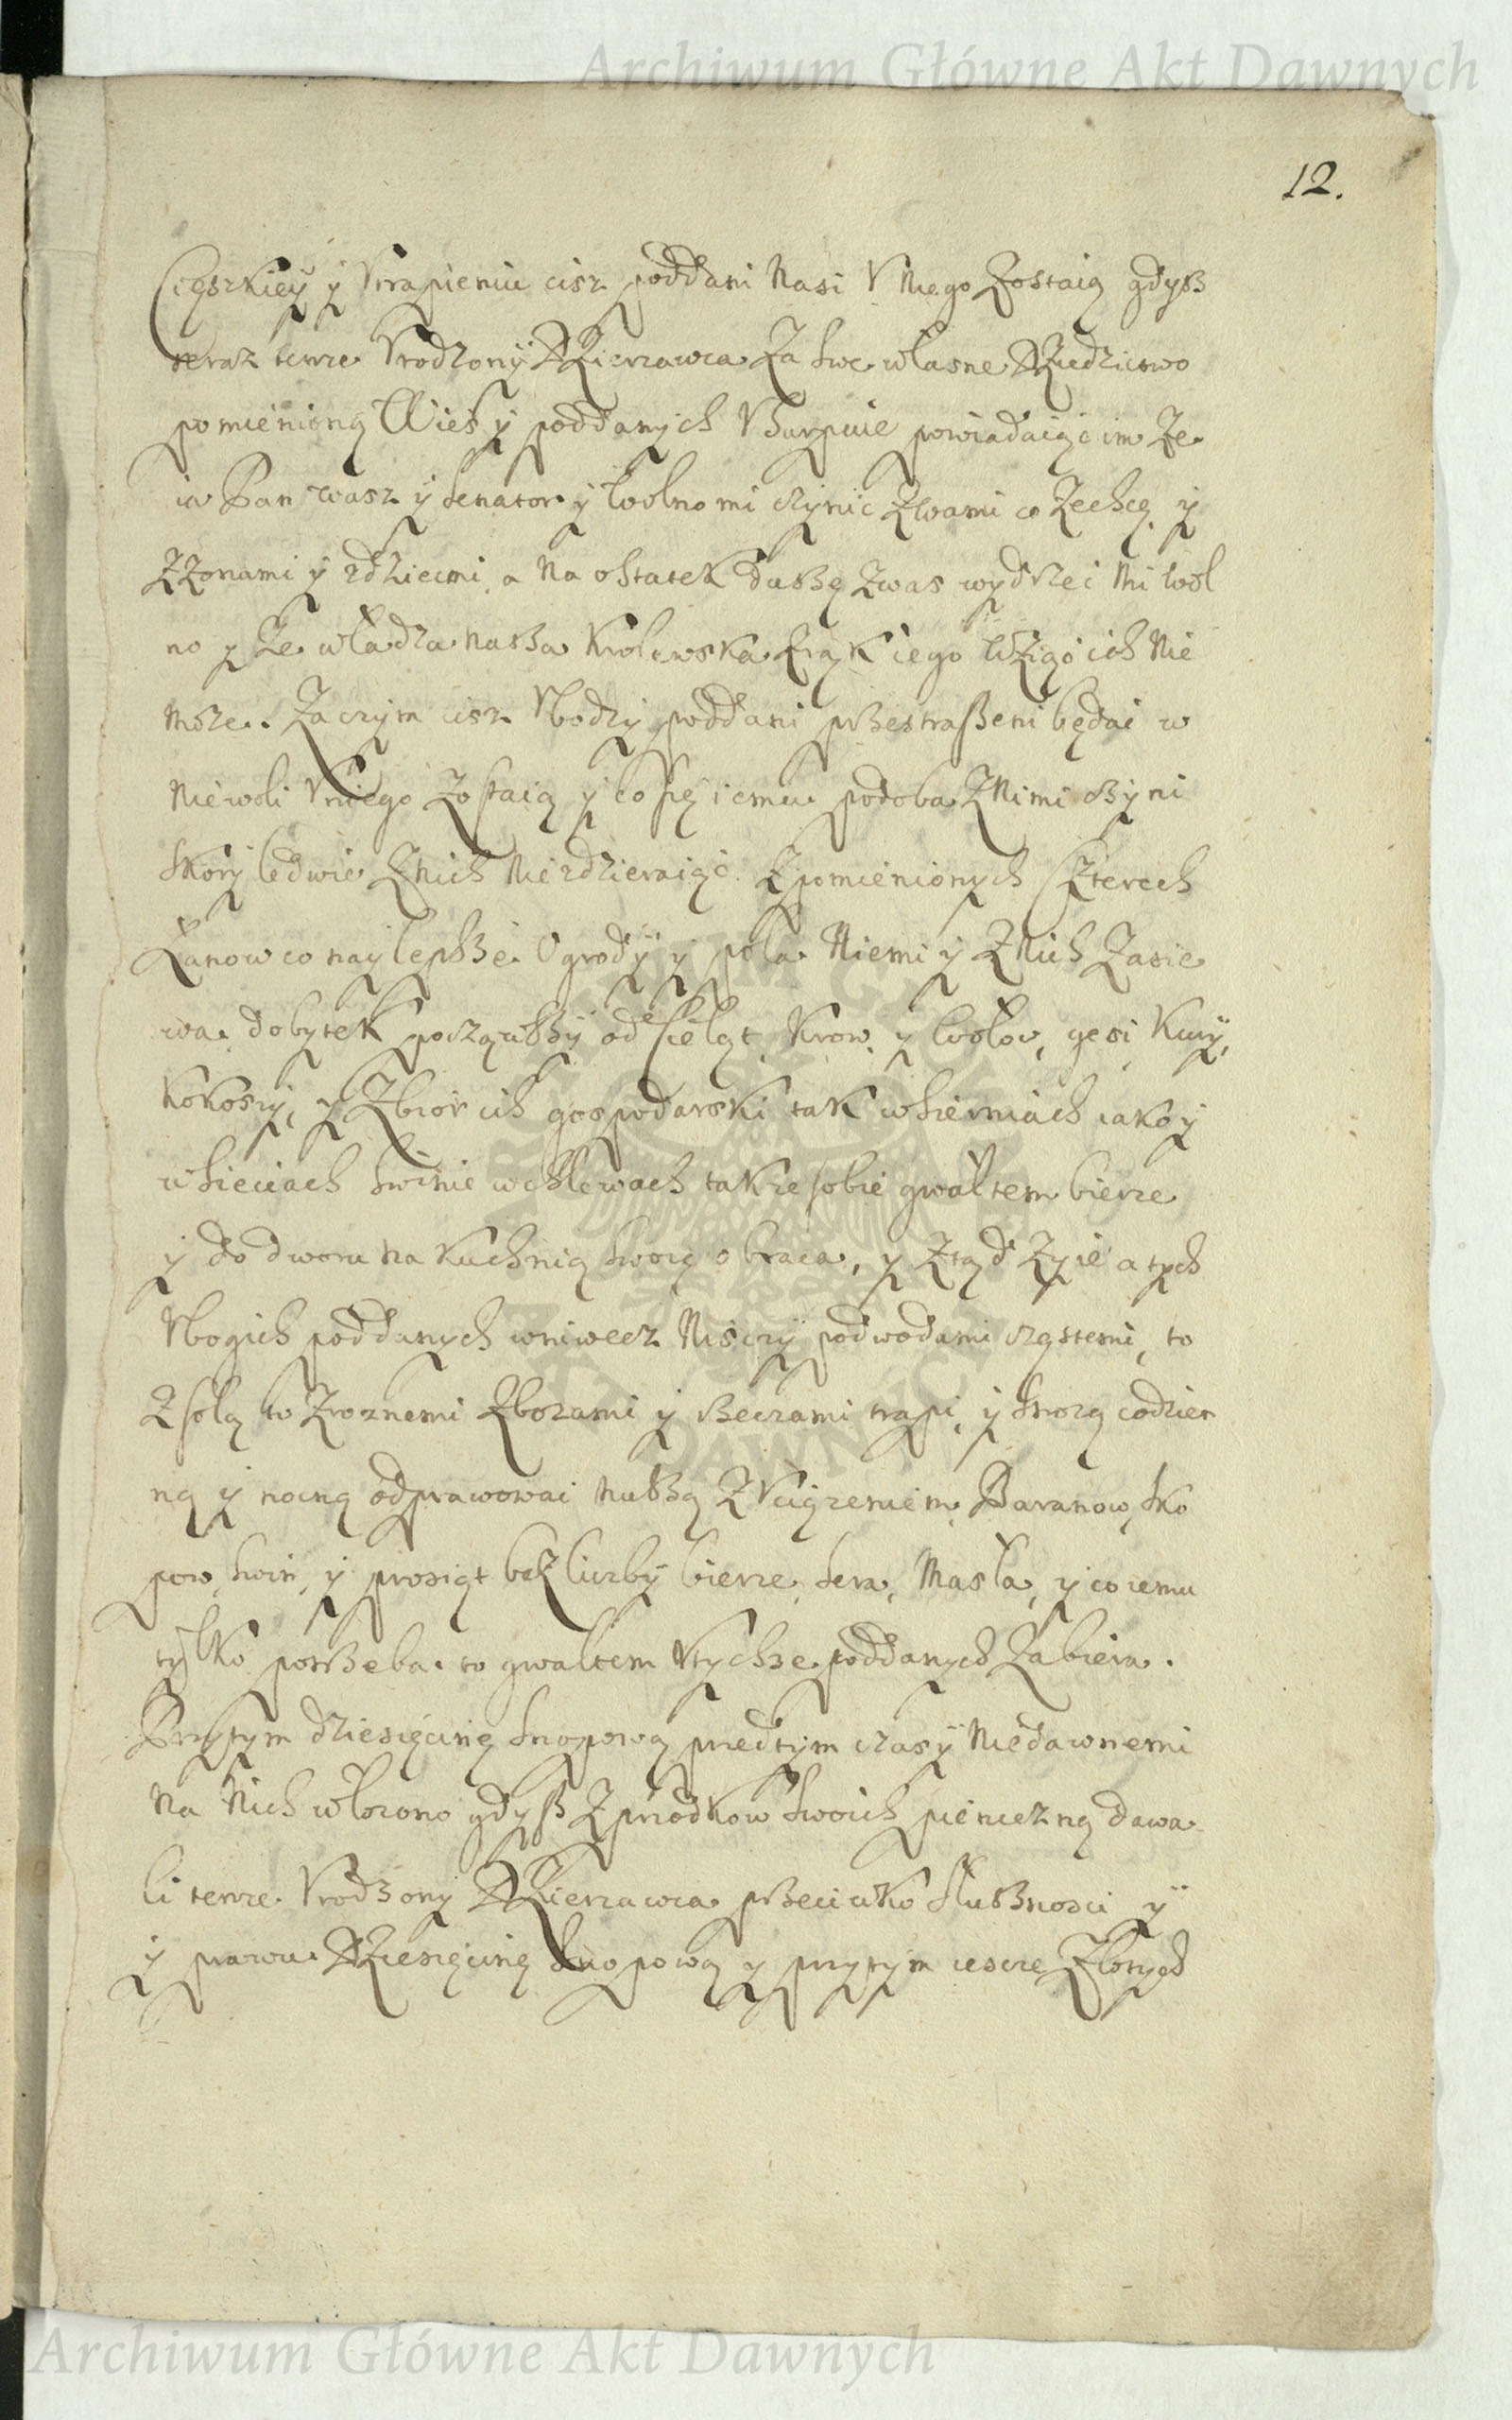 Archiwum Główne Akt Dawnych
12.
Cięszkiey y Vtrapieniu cisz poddani Nasi V Niego Zostaią gdysz
teraz tenze Vrodzony Dzierzawca Za swe własne Dziedzictwo
pomienioną Wieś y poddanych Vsurpuie powiadaiąc im Ze
ia Pan wasz y Senator y wolno mi czynic Zwami co Zechcę y
ZZonami y zdziecmi, a Na ostatek duszę Zwas wydrzec Mi wol
no y Ze władza nasza Krolewska Z rąk iego Wziąć ich Nie
moze. Zaczym cisz Vbodzy poddani przestraszeni będąc w
Niewoli Vniego Zostaią y co się iemu podoba ZNimi czyni
skory ledwie Znich Niezdzieraiąc. Zpomienionych Czterech
Łanow co naylepsze Ogrody y pola Niemi y ZNich Zasie
wa. dobytek począwszy od Cieląt, Krow, y Wołow, gęsi, Kury,
Kokoszy, y Zbior ich gospodarski tak w sierniach iako y
w sieciach swinie wchlewach takze sobie gwałtem bierze
y do dworu na kuchnią swoię obraca, y Ztąd Zyie a tych
Vbogich poddanych wniwecz Niszczy podwodami częstemi, to
Z solą to Zroznemi Zbozami y Beczami trapi, y strozą codzien
ną y nocną odprawować muszą ZVciązeniem. Baranow, sko
pow, swin, y prosiąt beZ liczby bierze, sera, Masła, y co iemu
tylko potrzeba. to gwaltem Vtychze poddanych Zabiera.
Przytym dziesięcinę snopową przedtym czasy Niedawnemi
Na Nich włozono gdysz Zprzodkow swoich pienięzną dawa
li tenze Vrodzony Dzierzawca przeciwko słusznosci y
y prawu Dziesięcinę snopową y przytym iescze Złotych
Archiwum Główne Akt Dawnych